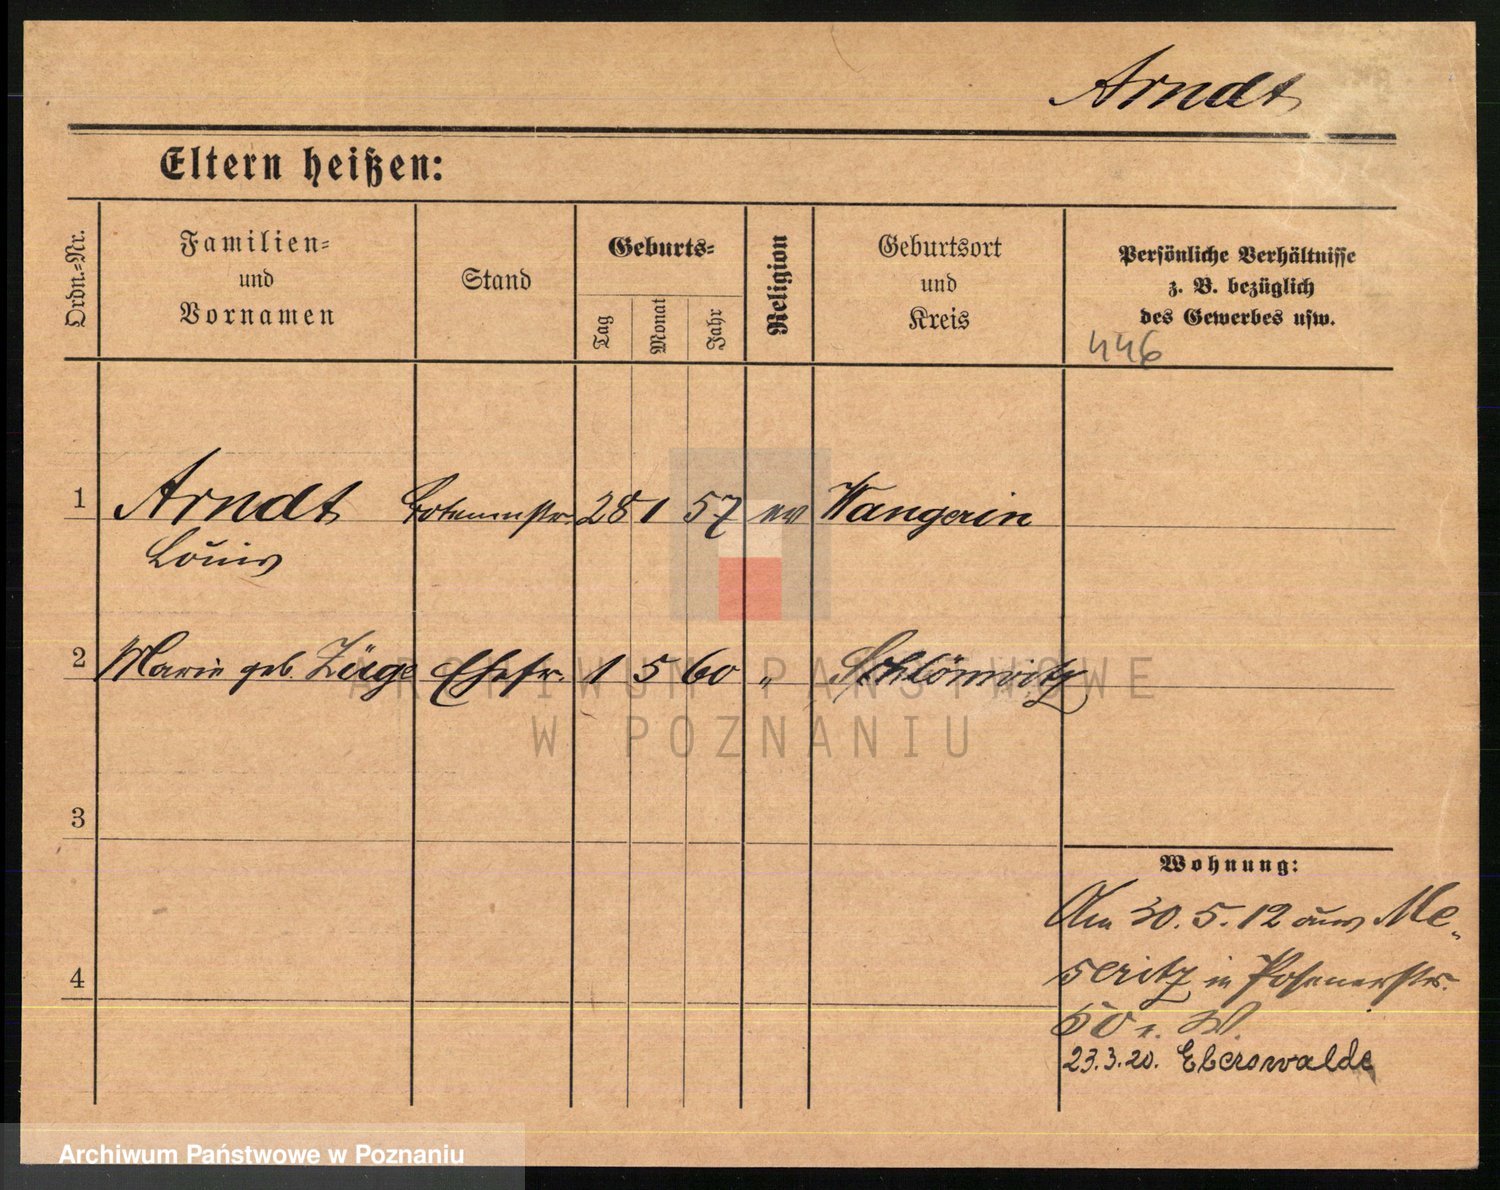 Arndt
Eltern heißen:
Ordn.=Nr.
Familien=
und
Vornamen
Stand
Geburts=
Tag
Monat
Jahr
Religion
Geburtsort
und
Kreis
Persönliche Verhältnisse
z. B. bezüglich
des Gewerbes usw.
446
1 Arndt 28 1 57 ev Wangerin
Louis
2 Marie geb. Züge Ehefr. 1 5 60 „ Schlönwitz
ARCHIWUM PAŃSTWOWE
W POZNANIU
3
Wohnung:
Am 30.5.12 aus Me-
seritz in Posenerstr.
4
50 r. W.
23.3.20. Eberswalde
Archiwum Państwowe w Poznaniu